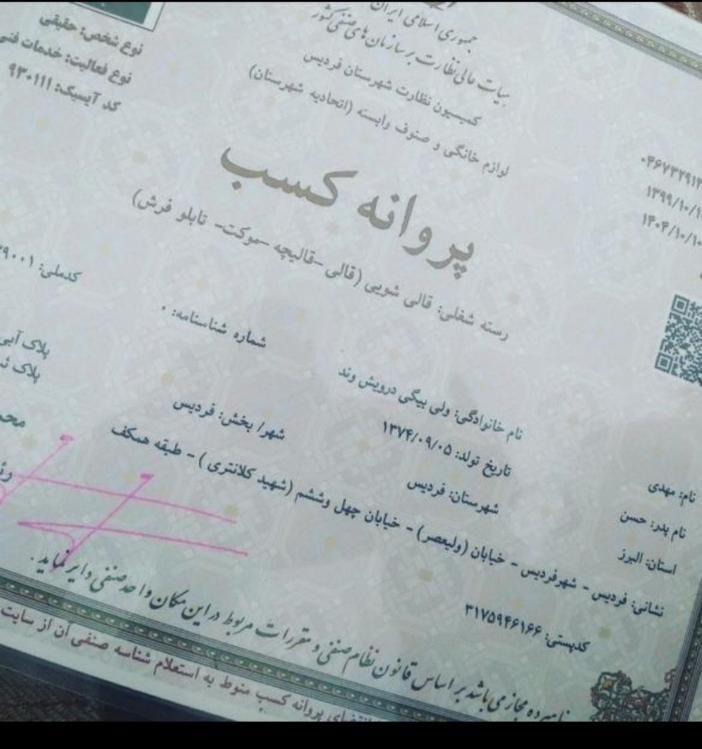 جمهوری اسلامی ایران
هیات عالی نظارت بر سازمان های صنفی کشور
کمیسیون نظارت شهرستان فردیس
لوازم خانگی و صنوف وابسته (اتحادیه شهرستان)
نوع شخص: حقیقی
نوع فعالیت: خدمات فنی
کد آیسیک: ۹۳۰۱۱۱
پروانه کسب
رسته شغلی: قالی شویی (قالی -قالیچه -موکت- تابلو فرش)
شماره شناسنامه: ۰
کدملی:
نام: مهدی
نام خانوادگی: ولی بیگی درویش وند
پلاک آبی
نام پدر: حسن
تاریخ تولد: ۱۳۷۴/۰۹/۰۵
پلاک
استان: البرز
شهرستان: فردیس
شهر/ بخش: فردیس
نشانی: فردیس - شهرفردیس - خیابان (ولیعصر) - خیابان چهل وششم (شهید کلانتری ) - طبقه همکف
کدپستی: ۳۱۷۵۹۴۶۱۶۶
نامبرده مجاز می باشد بر اساس قانون نظام صنفی و مقررات مربوط در این مکان واحد صنفی دایر نماید.
پروانه کسب منوط به استعلام شناسه صنفی آن از سایت